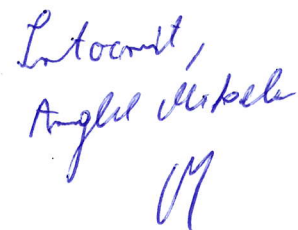 Intocmit,
Anghel Mihaela